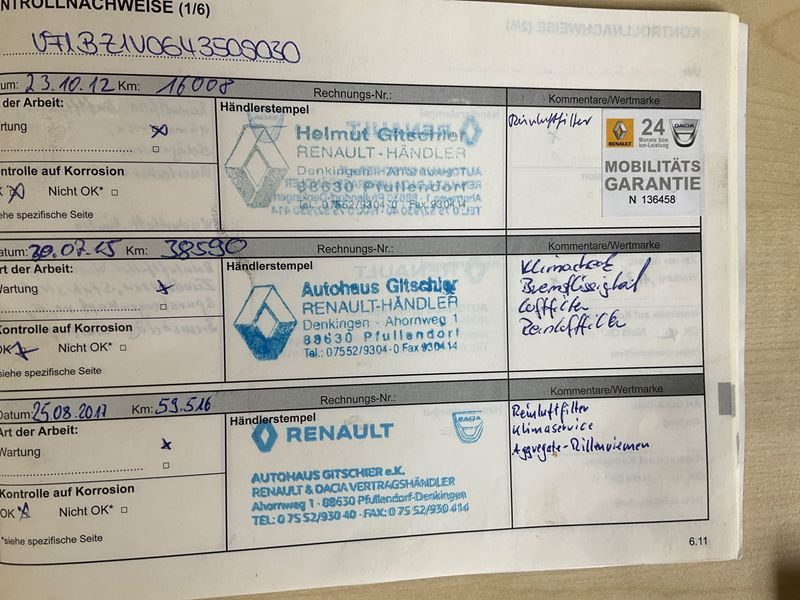 NTROLLNACHWEISE (1/6)
VF1BZ1V0643509030
tum: 23.10.12 Km: 16008 Rechnungs-Nr.: Kommentare/Wertmarke
der Arbeit: Händlerstempel
artung
Reinluftfilter
Helmut Gitschier
RENAULT-HÄNDLER
Denkingen - Ahornweg 1
88630 Pfullendorf
Tel.: 07552/9304-0 · Fax 930414
RENAULT
24
Monate bzw.
km-Leistung
DACIA
MOBILITÄTS
GARANTIE
N 136458
ntrolle auf Korrosion
K Nicht OK*
ehe spezifische Seite
atum: 30.07.15 Km: 38590 Rechnungs-Nr.: Kommentare/Wertmarke
Art der Arbeit: Händlerstempel
Wartung
Autohaus Gitschier
RENAULT-HÄNDLER
Denkingen - Ahornweg 1
88630 Pfullendorf
Tel.: 07552/9304-0 Fax 930414
Klimacheck
Bremsflüssigkeit
Luftfilter
Reinluftfilter
Kontrolle auf Korrosion
OK Nicht OK*
siehe spezifische Seite
Datum: 25.08.2017 Km: 59.516 Rechnungs-Nr.: Kommentare/Wertmarke
Art der Arbeit: Händlerstempel
Wartung
RENAULT
DACIA
AUTOHAUS GITSCHIER e.K.
RENAULT & DACIA VERTRAGSHÄNDLER
Ahornweg 1 · 88630 Pfullendorf-Denkingen
TEL.: 0 75 52/930 40 · FAX: 0 75 52/930 414
Reinluftfilter
Klimaservice
Aggregate-Rillenriemen
Kontrolle auf Korrosion
OK* Nicht OK*
*siehe spezifische Seite
6.11